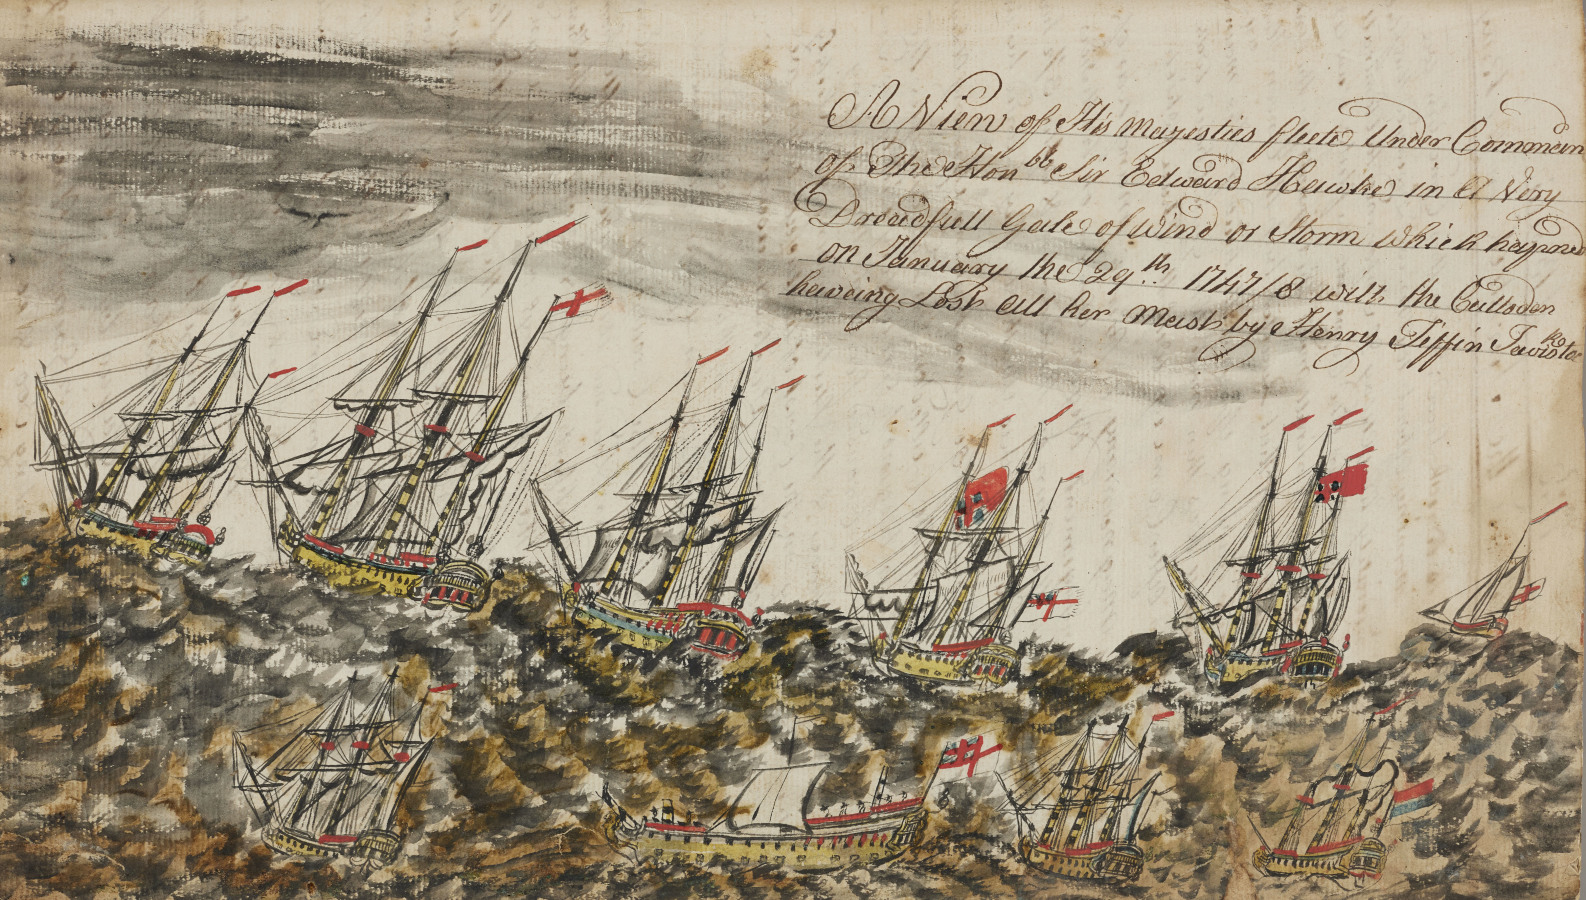 A View of His Majesties fleete Under Comman
of The Hon^ble Sir Edward Hawke in A Very
Dreadfull Gale of Wind or Storm which happned
on January the 29^th 1747/8 with the Culloden
haveing Lost all her Mast by Henry Tiffin